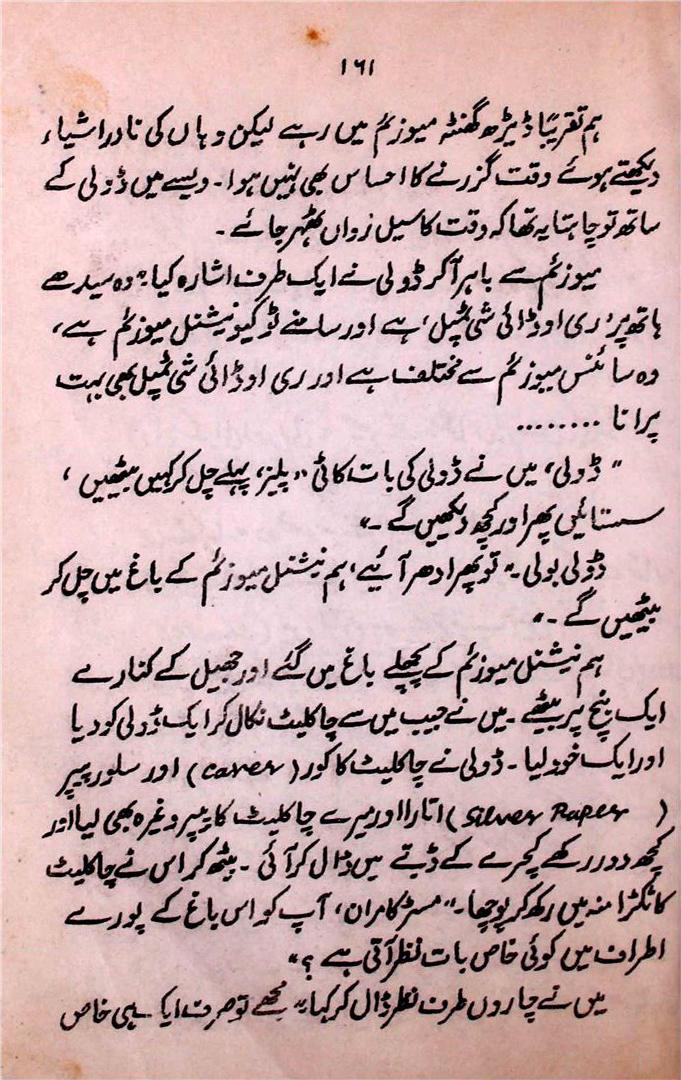 ۱۶۱
ہم تقریباً ڈیڑھ گھنٹہ میوزئم میں رہے لیکن وہاں کی نادر اشیاء
دیکھتے ہوئے وقت گزرنے کا احساس بھی نہیں ہوا۔ ویسے میں ڈولی کے
ساتھ تو چاہتا یہ تھا کہ وقت کا سیل زواں ٹھہر جائے۔
میوزئم سے باہر آ کر ڈولی نے ایک طرف اشارہ کیا۔ "وہ سیدھے
ہاتھ پر 'ری اوڈائی شی ٹمپل' ہے اور سامنے ٹوکیو نیشنل میوزئم ہے،
وہ سائنس میوزئم سے مختلف ہے اور ری اوڈائی شی ٹمپل بھی بہت
پرانا ........
"ڈولی، میں نے ڈولی کی بات کاٹی "پلیز، پہلے چل کر کہیں بیٹھیں،
سستائیں پھر اور کچھ دیکھیں گے۔"
ڈولی بولی۔ "تو پھر ادھر آئیے، ہم نیشنل میوزئم کے باغ میں چل کر
بیٹھیں گے۔"
ہم نیشنل میوزئم کے پچھلے باغ میں گئے اور جھیل کے کنارے
ایک بنچ پر بیٹھے۔ میں نے جیب میں سے چاکلیٹ نکال کر ایک ڈولی کو دیا
اور ایک خود لیا۔ ڈولی نے چاکلیٹ کا کور (cover) اور سلور پیپر
(Silver Paper) اتارا اور میرے چاکلیٹ کا پیپر وغیرہ بھی لیا اور
کچھ دور رکھے کچرے کے ڈبے میں ڈال کر آئی۔ بیٹھ کر اس نے چاکلیٹ
کا ٹکڑا منہ میں رکھ کر پوچھا۔ "مسٹر کامران، آپ کو اس باغ کے پورے
اطراف میں کوئی خاص بات نظر آتی ہے؟"
میں نے چاروں طرف نظر ڈال کر کہا۔ "مجھے تو صرف ایک ہی خاص